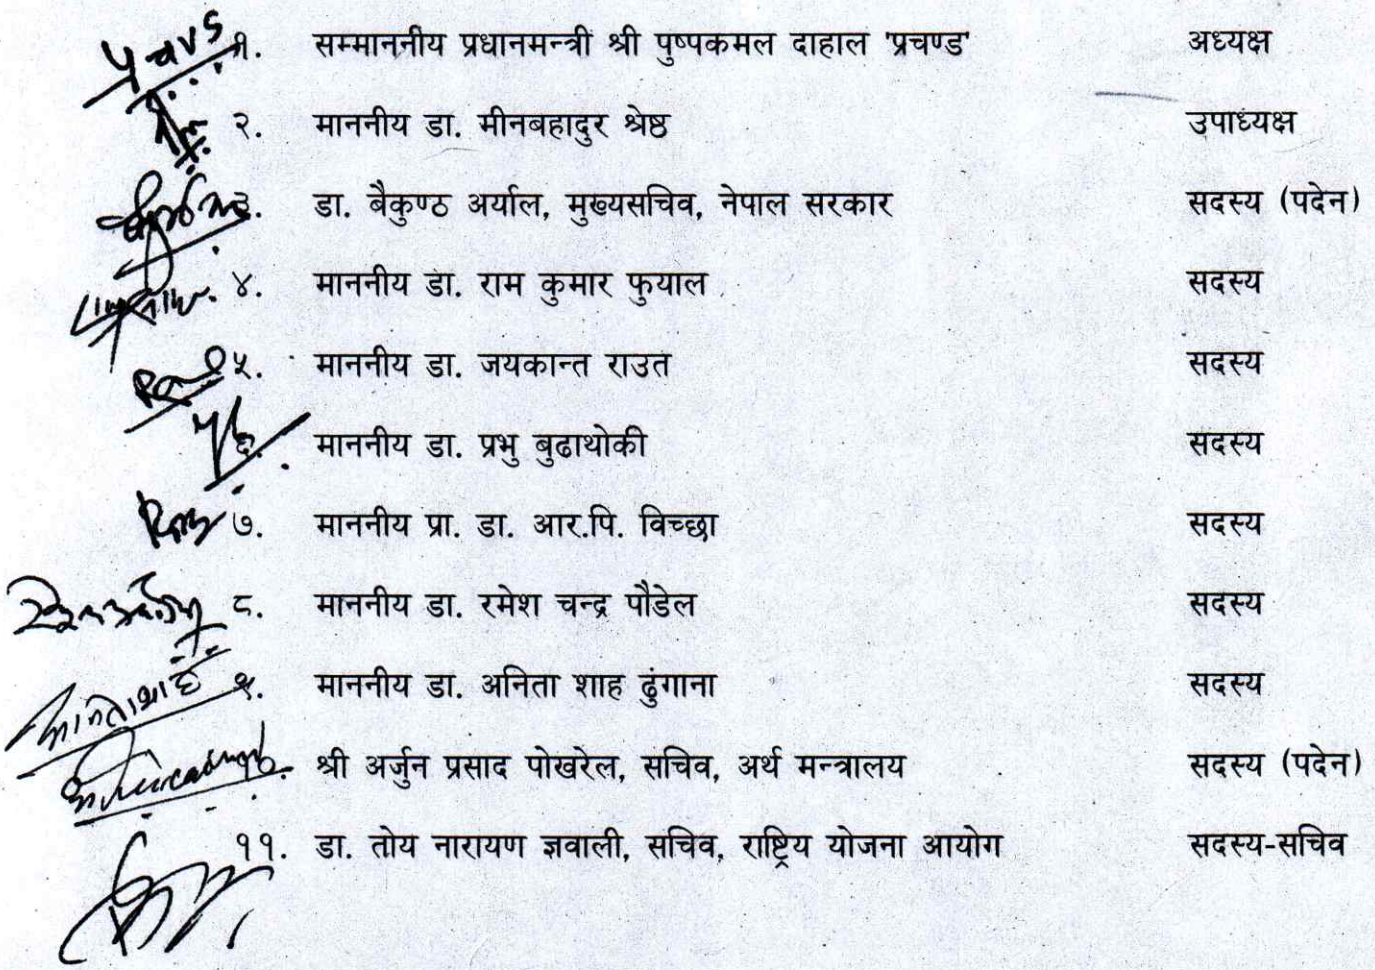 १. सम्माननीय प्रधानमन्त्री श्री पुष्पकमल दाहाल 'प्रचण्ड' अध्यक्ष
२. माननीय डा. मीनबहादुर श्रेष्ठ उपाध्यक्ष
३. डा. बैकुण्ठ अर्याल, मुख्यसचिव, नेपाल सरकार सदस्य (पदेन)
४. माननीय डा. राम कुमार फुयाल सदस्य
५. माननीय डा. जयकान्त राउत सदस्य
६. माननीय डा. प्रभु बुढाथोकी सदस्य
७. माननीय प्रा. डा. आर.पि. विच्छा सदस्य
८. माननीय डा. रमेश चन्द्र पौडेल सदस्य
९. माननीय डा. अनिता शाह ढुंगाना सदस्य
१०. श्री अर्जुन प्रसाद पोखरेल, सचिव, अर्थ मन्त्रालय सदस्य (पदेन)
११. डा. तोय नारायण ज्ञवाली, सचिव, राष्ट्रिय योजना आयोग सदस्य-सचिव